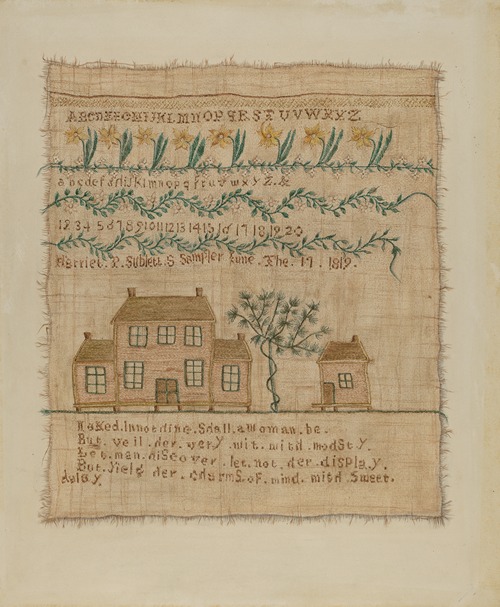 ABCDEFGHIJKLMNOPQRSTUVWXYZ.
abcdefghijklmnopqrſtuvwxyz.&
1234567891011121314151617181920
Harriet.P.Sublett.S Sampler June.The.17.1819.
Naked.In.notding.Sdall.a.Woman.be.
But.veil.der.very.wit.witd.modsty.
Let.man.discover.let.not.der.display.
But.yield.der.cdarmS.of.mind.witd.Sweet.
delay.